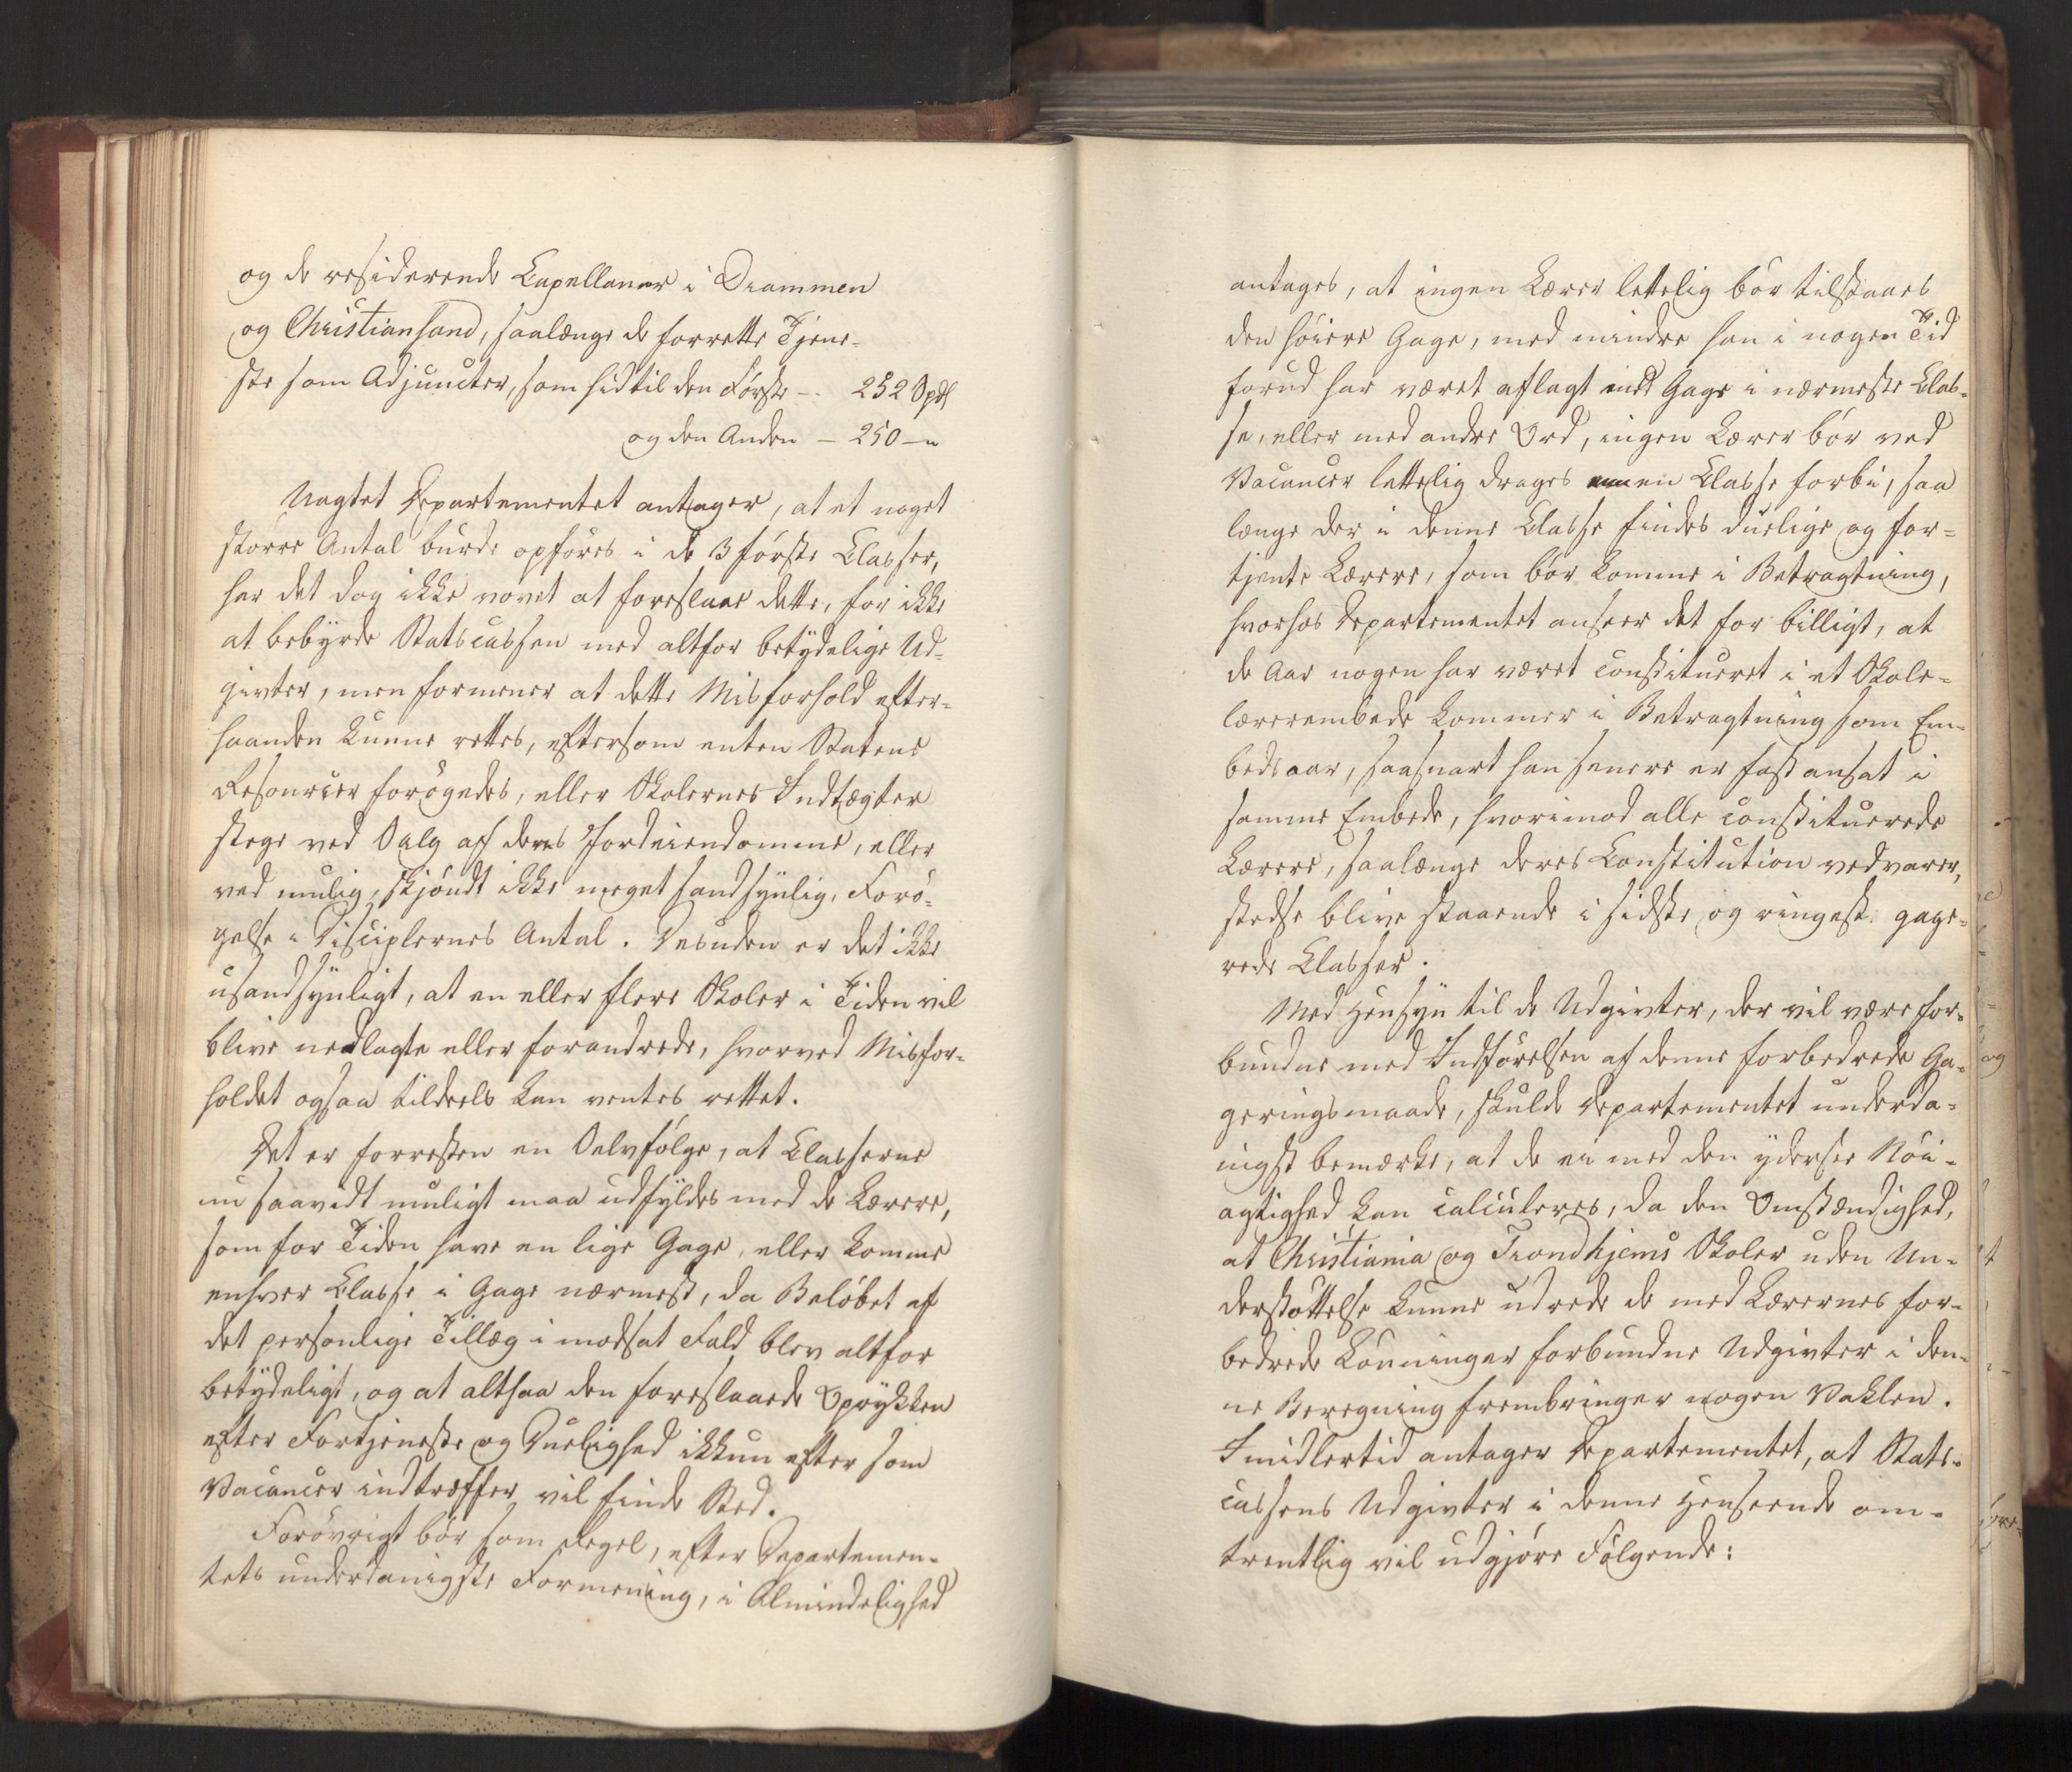 og de residerende Capellaner i Drammen
og Christiansand, saalænge de forrette Tjene-
ste som Adjuncter, som hidtil den Første -. 252 Spd
og den Anden - 250 - "
Uagtet Departementet antager, at et noget
större Antal burde opföres i de 3 förste Classer,
har det dog ikke vovet at foreslaae dette, for ikke
at bebyrde Statscassen med altfor betydelige Ud-
givter, men formener at dette Misforhold efter-
haanden kunne rettes, eftersom enten Statens
Resourcer forögedes, eller Skolernes Indtægter
stege ved Salg af deres Jordeiendomme, eller
ved mulig, skjöndt ikke meget sandsynlig, Forö-
gelse i Disciplernes Antal. Desuden er det ikke
usandsynligt, at en eller flere Skoler i Tiden vil
blive nedlagte eller forandrede, hvorved Misfor-
holdet ogsaa tildeels kan ventes rettet.
Det er forresten en Selvfölge, at Classerne
nu saavidt muligt maa udfyldes med de Lærere,
som for Tiden have en lige Gage, eller komme
enhver Classe i Gage nærmest, da Belöbet af
det personlige Tillæg i modsat Fald blev altfor
betydeligt, og at altsaa den foreslaaede Oprykken
efter Fortjeneste og Duelighed ikkun efter som
Vacancer indtræffer vil finde Sted.
ForöVrigt bör som Regel, efter Departemen-
tets underdanigste Formening, i Almindelighed
antages, at ingen Lærer lettelig bör tilstaaes
den höiere Gage, med mindre han i nogen Tid
forud har været aflagt med Gage i nærmeste Clas-
se, eller med andre Ord, ingen Lærer bör ved
Vacancer lettelig drages en Classe forbi, saa
længe der i denne Classe findes duelige og for-
tjente Lærere, som bör komme i Betragtning,
hvorhos Departementet anseer det for billigt, at
de Aar nogen har været constitueret i et Skole-
lærerembede kommer i Betragtning som Em-
bedsaar, saasnart han senere er fast ansat i
samme Embede, hvorimod alle constituerede
Lærere, saalænge deres Constitution vedvarer,
stedse blive staaende i sidste og ringest gage-
rede Classer.
Med Hensyn til de Udgivter, der vil være for-
bundne med Indförelsen af denne forbedrede Ga-
geringsmaade, skulde Departementet underda-
nigst bemærke, at de ei med den yderste Nöi-
agtighed kan calculeres, da den Omstændighed,
at Christiania og Trondhjems Skoler uden Un-
derstöttelse kunne udrede de med Lærernes for-
bedrede Lönninger forbundne Udgivter i den-
ne Beregning frembringer nogen Vaklen.
Imidlertid antager Departementet, at Stats-
cassens Udgivter i denne Henseende om-
trentlig vil udgjöre Fölgende: